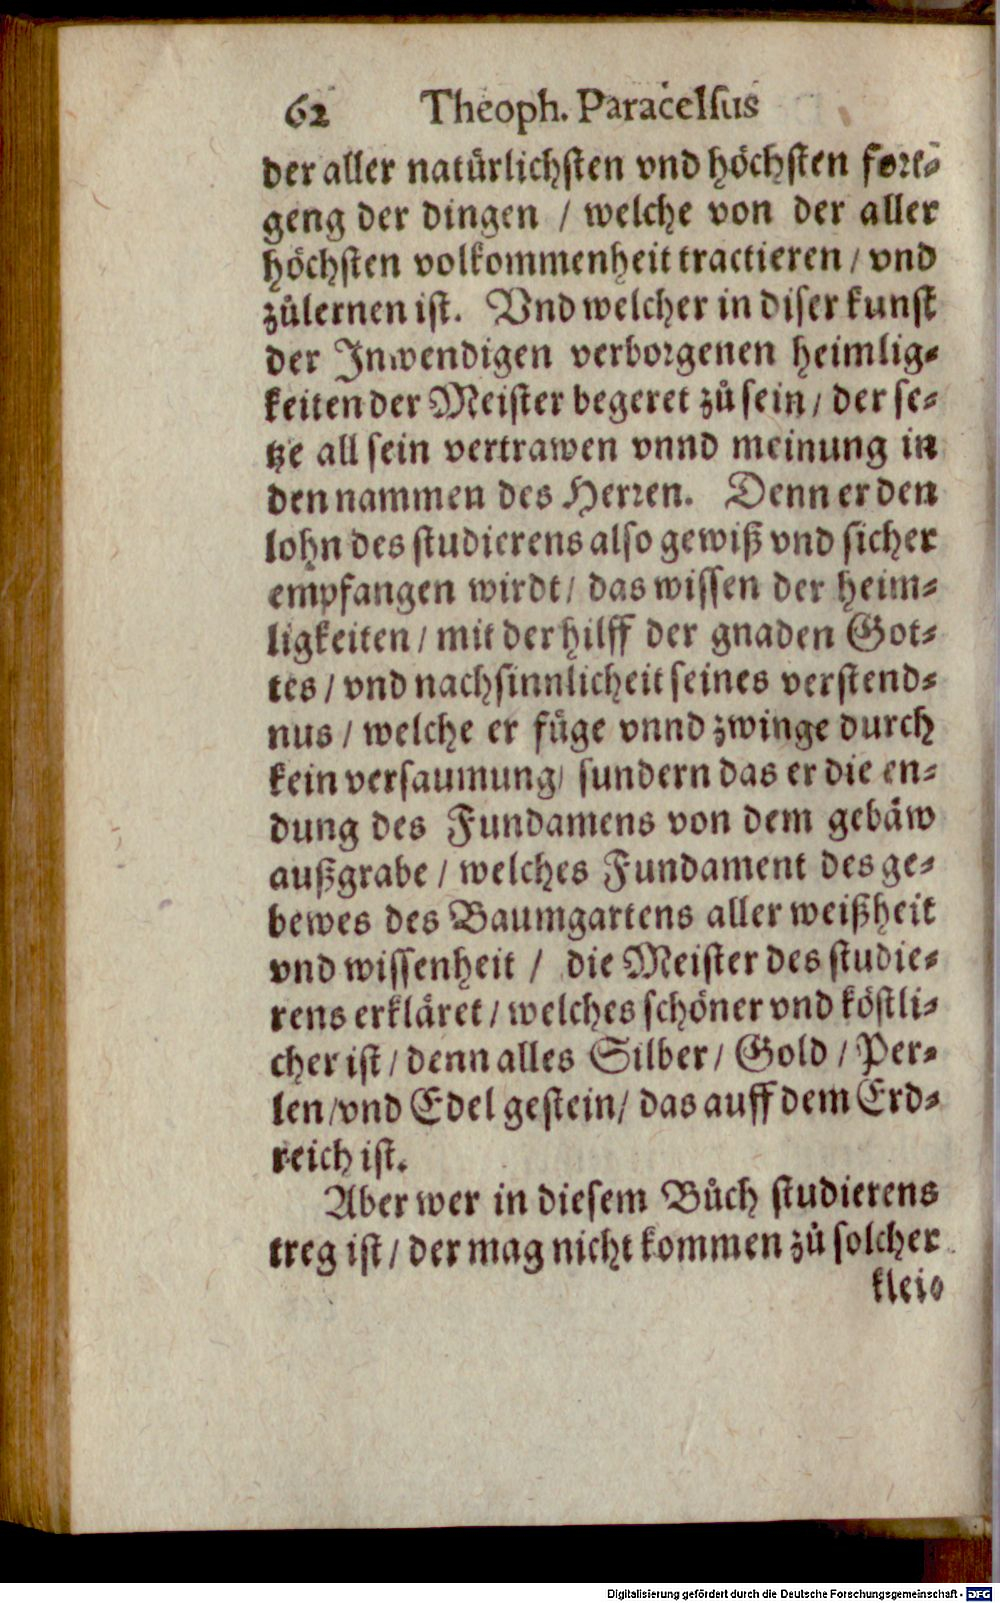 62 Theoph. Paracelsus
der aller natürlichsten vnd höchsten fort⸗
geng der dingen / welche von der aller
höchsten volkommenheit tractieren / vnd
zůlernen ist. Vnd welcher in diser kunst
der Inwendigen verborgenen heimlig⸗
keiten der Meister begeret zů sein / der se⸗
tze all sein vertrawen vnnd meinung in
den nammen des Herren. Denn er den
lohn des studierens also gewiß vnd sicher
empfangen wirdt / das wissen der heim⸗
ligkeiten / mit der hilff der gnaden Got⸗
tes / vnd nachsinnlicheit seines verstend⸗
nus / welche er füge vnnd zwinge durch
kein versaumung / sundern das er die en⸗
dung des Fundamens von dem gebäw
außgrabe / welches Fundament des ge⸗
bewes des Baumgartens aller weißheit
vnd wissenheit / die Meister des studie⸗
rens erkläret / welches schöner vnd köstli⸗
cher ist / denn alles Silber / Gold / Per⸗
len / vnd Edel gestein / das auff dem Erd⸗
reich ist.
Aber wer in diesem Bůch studierens
treg ist / der mag nicht kommen zů solcher
Digitalisierung gefördert durch die Deutsche Forschungsgemeinschaft - DFG